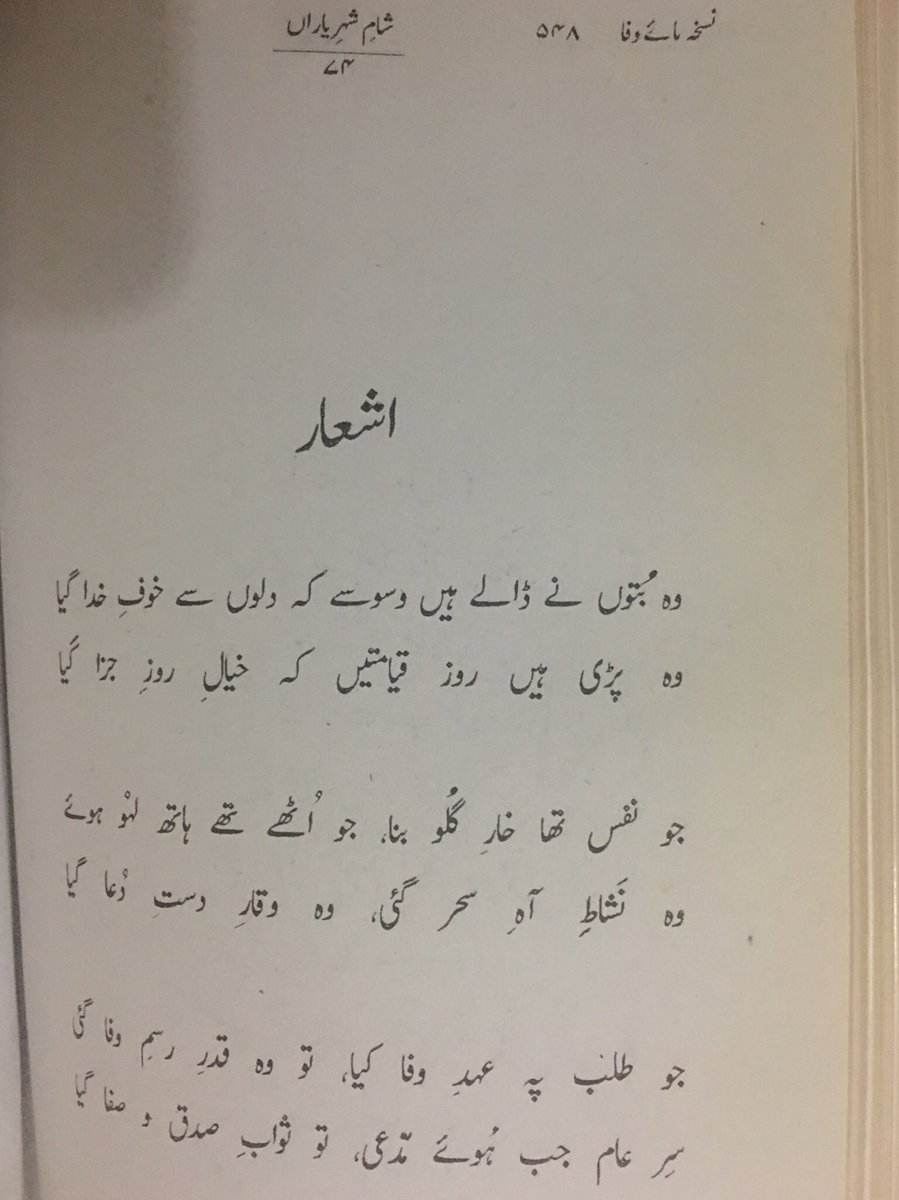 نسخہ ہائے وفا ۵۴۸ شامِ شہرِ یاراں
۷۴
اشعار
وہ بُتوں نے ڈالے ہیں وسوسے کہ دلوں سے خوفِ خدا گیا
وہ پڑی ہیں روز قیامتیں کہ خیالِ روزِ جزا گیا
جو نفس تھا خارِ گُلو بنا، جو اُٹھے تھے ہاتھ لہُو ہوئے
وہ نَشاطِ آہِ سحر گئی، وہ وقارِ دستِ دُعا گیا
جو طلب پہ عہدِ وفا کیا، تو وہ قدرِ رسمِ وفا گئی
سرِ عام جب ہُوئے مدّعی، تو ثوابِ صدق و صفا گیا